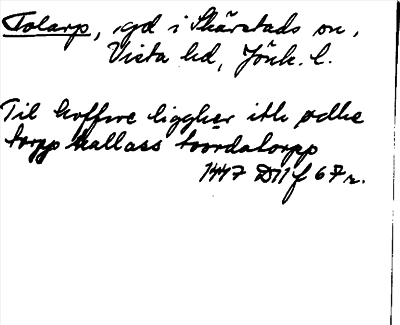 Tolarp, gd i Skärstads sn,
Vista hd, Jönk. l.
Til hoffwe liggher ith ødhe
torpp kallass toordatorpp
1447 D11 f 67 r.